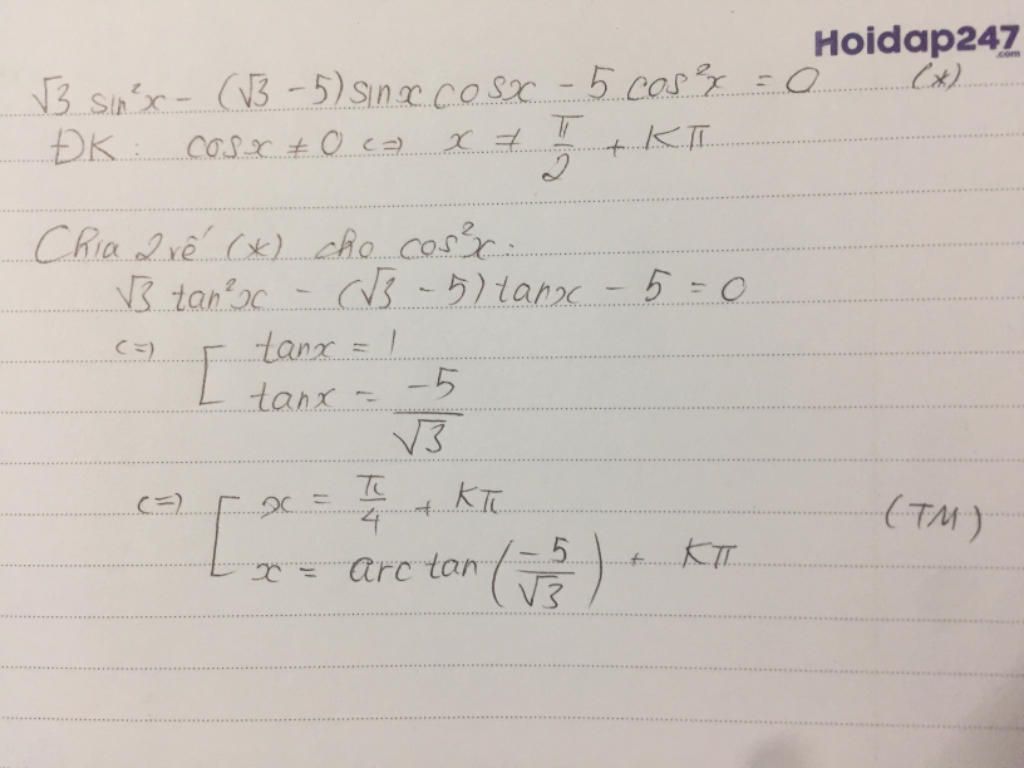 Hoidap247
.com
√3 sin²x - (√3 - 5) sinx cosx - 5 cos²x = 0 (*)
ĐK: cosx ≠ 0 <=> x ≠ π/2 + Kπ
Chia 2 vế (*) cho cos²x:
√3 tan²x - (√3 - 5) tanx - 5 = 0
<=> [ tanx = 1
tanx = -5/√3
<=> [ x = π/4 + Kπ (TM)
x = arctan(-5/√3) + Kπ